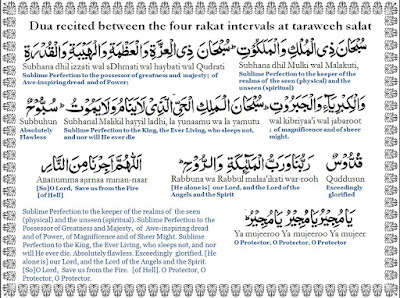 Dua recited between the four rakat intervals at taraweeh salat
سُبْحَانَ ذِي الْمُلْكِ وَالْمَلَكُوْتِ ؕ سُبْحَانَ ذِي الْعِزَّةِ وَالْعَظَمَةِ وَالْهَيْبَةِ وَالْقُدْرَةِ
Subhana dhil izzati wal aDhmati wal haybati wal Qudrati Subhana dhil Mulki wal Malakuti,
Sublime Perfection to the possessor of greatness and majesty; of Sublime Perfection to the keeper of the
Awe-inspiring dread and of Power; realms of the seen (physical) and the
unseen (spiritual)
وَالْكِبْرِيَآءِ وَالْجَبَرُوْتِ ؕ سُبْحَانَ الْمَلِكِ الْحَيِّ الَّذِيْ لَا يَنَامُ وَلَا يَمُوْتُ ؕ سُبُّوْحٌ
Subbuhun Subhanal Malikil hayyil ladhi, la yunaamu wa la yamutu wal kibriya'i wal jabaroot
Absolutely Sublime Perfection to the King, the Ever Living, who sleeps not, ; of magnificence and of sheer
Flawless; and nor will He ever die. might.
قُدُّوْسٌ رَبُّنَا وَرَبُّ الْمَلٰٓئِكَةِ وَالرُّوْحِ ؕ اَللّٰهُمَّ اَجِرْنَا مِنَ النَّارِ
Allahumma ajirnaa minan-naar Rabbuna wa Rabbul malaa'ikati war-rooh Quddusun
[So]O Lord, Save us from the Fire [He alone is] our Lord, and the Lord of the Exceedingly
[of Hell] Angels and the Spirit glorified.
يَا مُجِيْرُ يَا مُجِيْرُ يَا مُجِيْرُ
Ya mujeeroo Ya mujeeroo Ya mujeer
O Protector, O Protector, O Protector
Sublime Perfection to the keeper of the realms of the seen
(physical) and the unseen (spiritual). Sublime Perfection to the
Possessor of Greatness and Majesty, of Awe-inspiring dread
and of Power, of Magnificence and of Sheer Might. Sublime
Perfection to the King, the Ever Living, who sleeps not, and nor
will He ever die. Absolutely flawless. Exceedingly glorified. [He
alone is] our Lord, and the Lord of the Angels and the Spirit.
[So]O Lord, Save us from the Fire. [of Hell]. O Protector, O
Protector, O Protector.